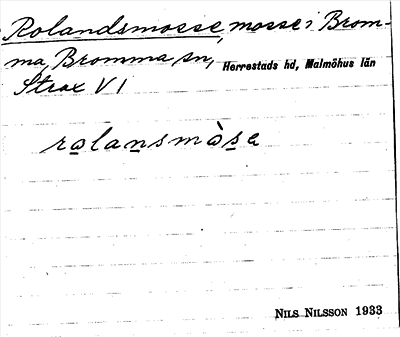 Rolandsmosse, mosse i Brom-
ma, Bromma sn, Herrestads hd, Malmöhus län
Strax V 1
ralansmòsa
NILS NILSSON 1933